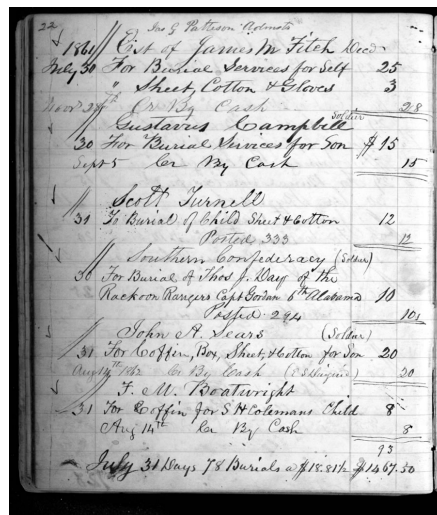 22 Jas G Patteson Admntr
1861 Est of James M Fitch Decd
July 30 For Burial Services for Self 25
" Sheet, Cotton & Gloves 3
Novr 28th Cr By Cash 28
Gustavus Campbell Soldier
30 For Burial Services for Son $15
Sept 5 Cr By Cash 15
Scott Turnell
31 To Burial of Child Sheet & Cotton 12
Posted 333 12
Southern Confederacy (Soldier)
30 For Burial of Thos J. Day of the
Rackoon Rangers Capt Gordan 6th Alabama 10
Posted 294 10
John A. Sears (Soldier)
31 For Coffin, Box, Sheet, & Cotton for Son 20
Aug 14th 1862 Cr By Cash 20
F. M. Boatwright
31 For Coffin for S H Colemans Child 8
Aug 14th Cr By Cash 8
93
July 31 Days 78 Burials a $18.81½ $1467.50